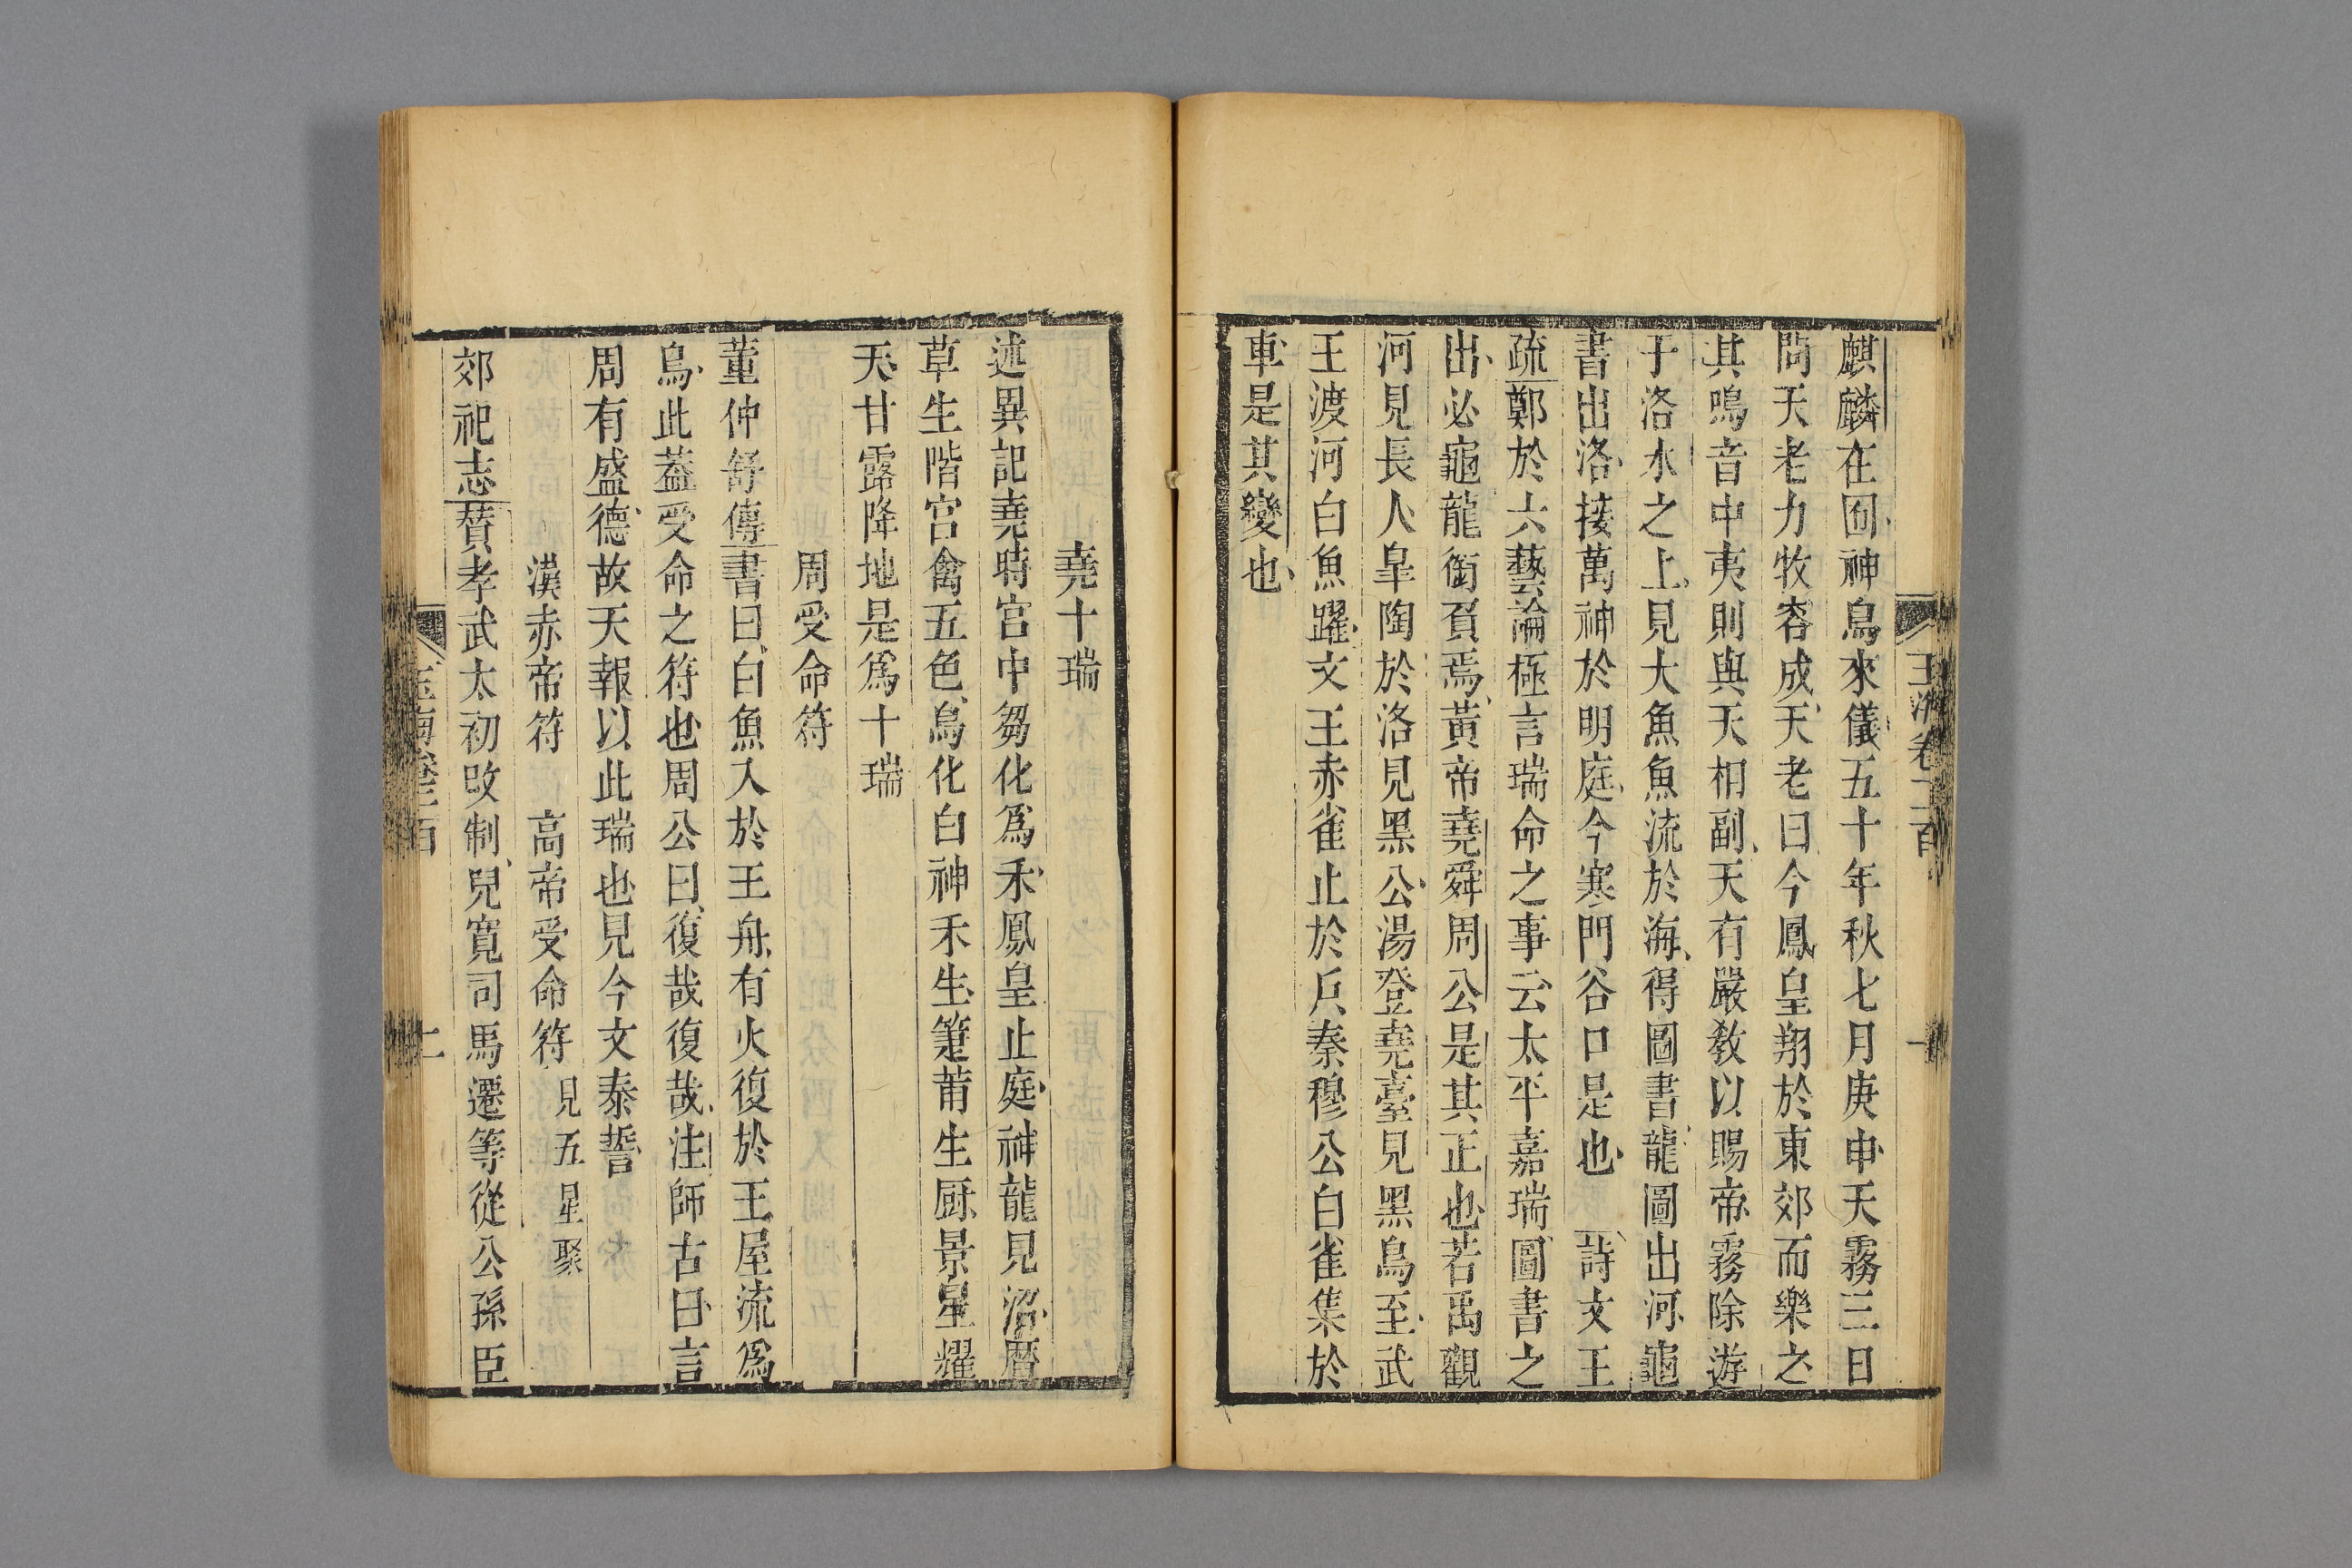 麒麟在囿神鳥來儀五十年秋七月庚申天霧三日
問天老力牧容成天老曰今鳳皇翔於東郊而樂之
其鳴音中夷則與天相副天有嚴敎以賜帝霧除遊
于洛水之上見大魚魚流於海得圖書龍圖出河龜
書出洛接萬神於明庭今寒門谷口是也 詩文王
疏鄭於六藝論極言瑞命之事云太平嘉瑞圖書之
出必龜龍銜負焉黃帝堯舜周公是其正也若禹觀
河見長人皐陶於洛見黑公湯登堯臺見黑鳥至武
王渡河白魚躍文王赤雀止於戶秦穆公白雀集於
車是其變也
堯十瑞
述異記堯時宮中芻化爲禾鳳皇止庭神龍見沼曆
草生階宮禽五色鳥化白神禾生箑莆生厨景星耀
天甘露降地是爲十瑞
周受命符
董仲舒傳書曰白魚入於王舟有火復於王屋流爲
烏此蓋受命之符也周公曰復哉復哉注師古曰言
周有盛德故天報以此瑞也見今文泰誓
漢赤帝符 高帝受命符見五星聚
郊祀志贊孝武太初改制兒寬司馬遷等從公孫臣
玉海卷二百